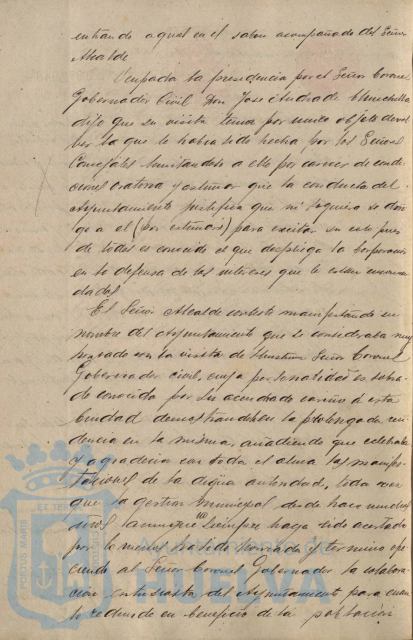 entrando aquel en el salon acompañado del Señor
Alcalde
Ocupada la presidencia por el Señor Coronel
Gobernador Civil Don José Andrade Chinchilla
dijo que su visita tenia por unico objeto devol
ver la que le habia sido hecha por los Señores
Concejales limitandose a ello por carecer de condi
ciones oratoria y estimar que la conducta del
Ayuntamiento justifica que ni siquiera se diri
ga a el (por estimars) para excitar su celo pues
de todos es conocido el que despliega la Corporacion
en la defensa de los intereses que le estan encomen
dados
El Señor Alcalde contestó manifestando en
nombre del Ayuntamiento que se consideraba muy
honrado con la visita de Señor Coronel
Gobernador civil, cuya personalidad es sobra
da conocida por su acendrado cariño a esta
Ciudad demostrandolo en la prolongada resi
dencia en la misma, añadiendo que celebraba
y agradecia con toda el alma las manifes
taciones de la digna autoridad, toda vez
que la gestion municipal desde hace muchos
años aunque no siempre haya sido acertada
por lo menos ha sido honrada y terminó ofre
ciendo al Señor Coronel Gobernador la colabora
cion entusiasta del Ayuntamiento para cuan
to redunde en beneficio de la poblacion
Ayuntamiento de
HUELVA
PORTUS MARIS
ET TERRÆ